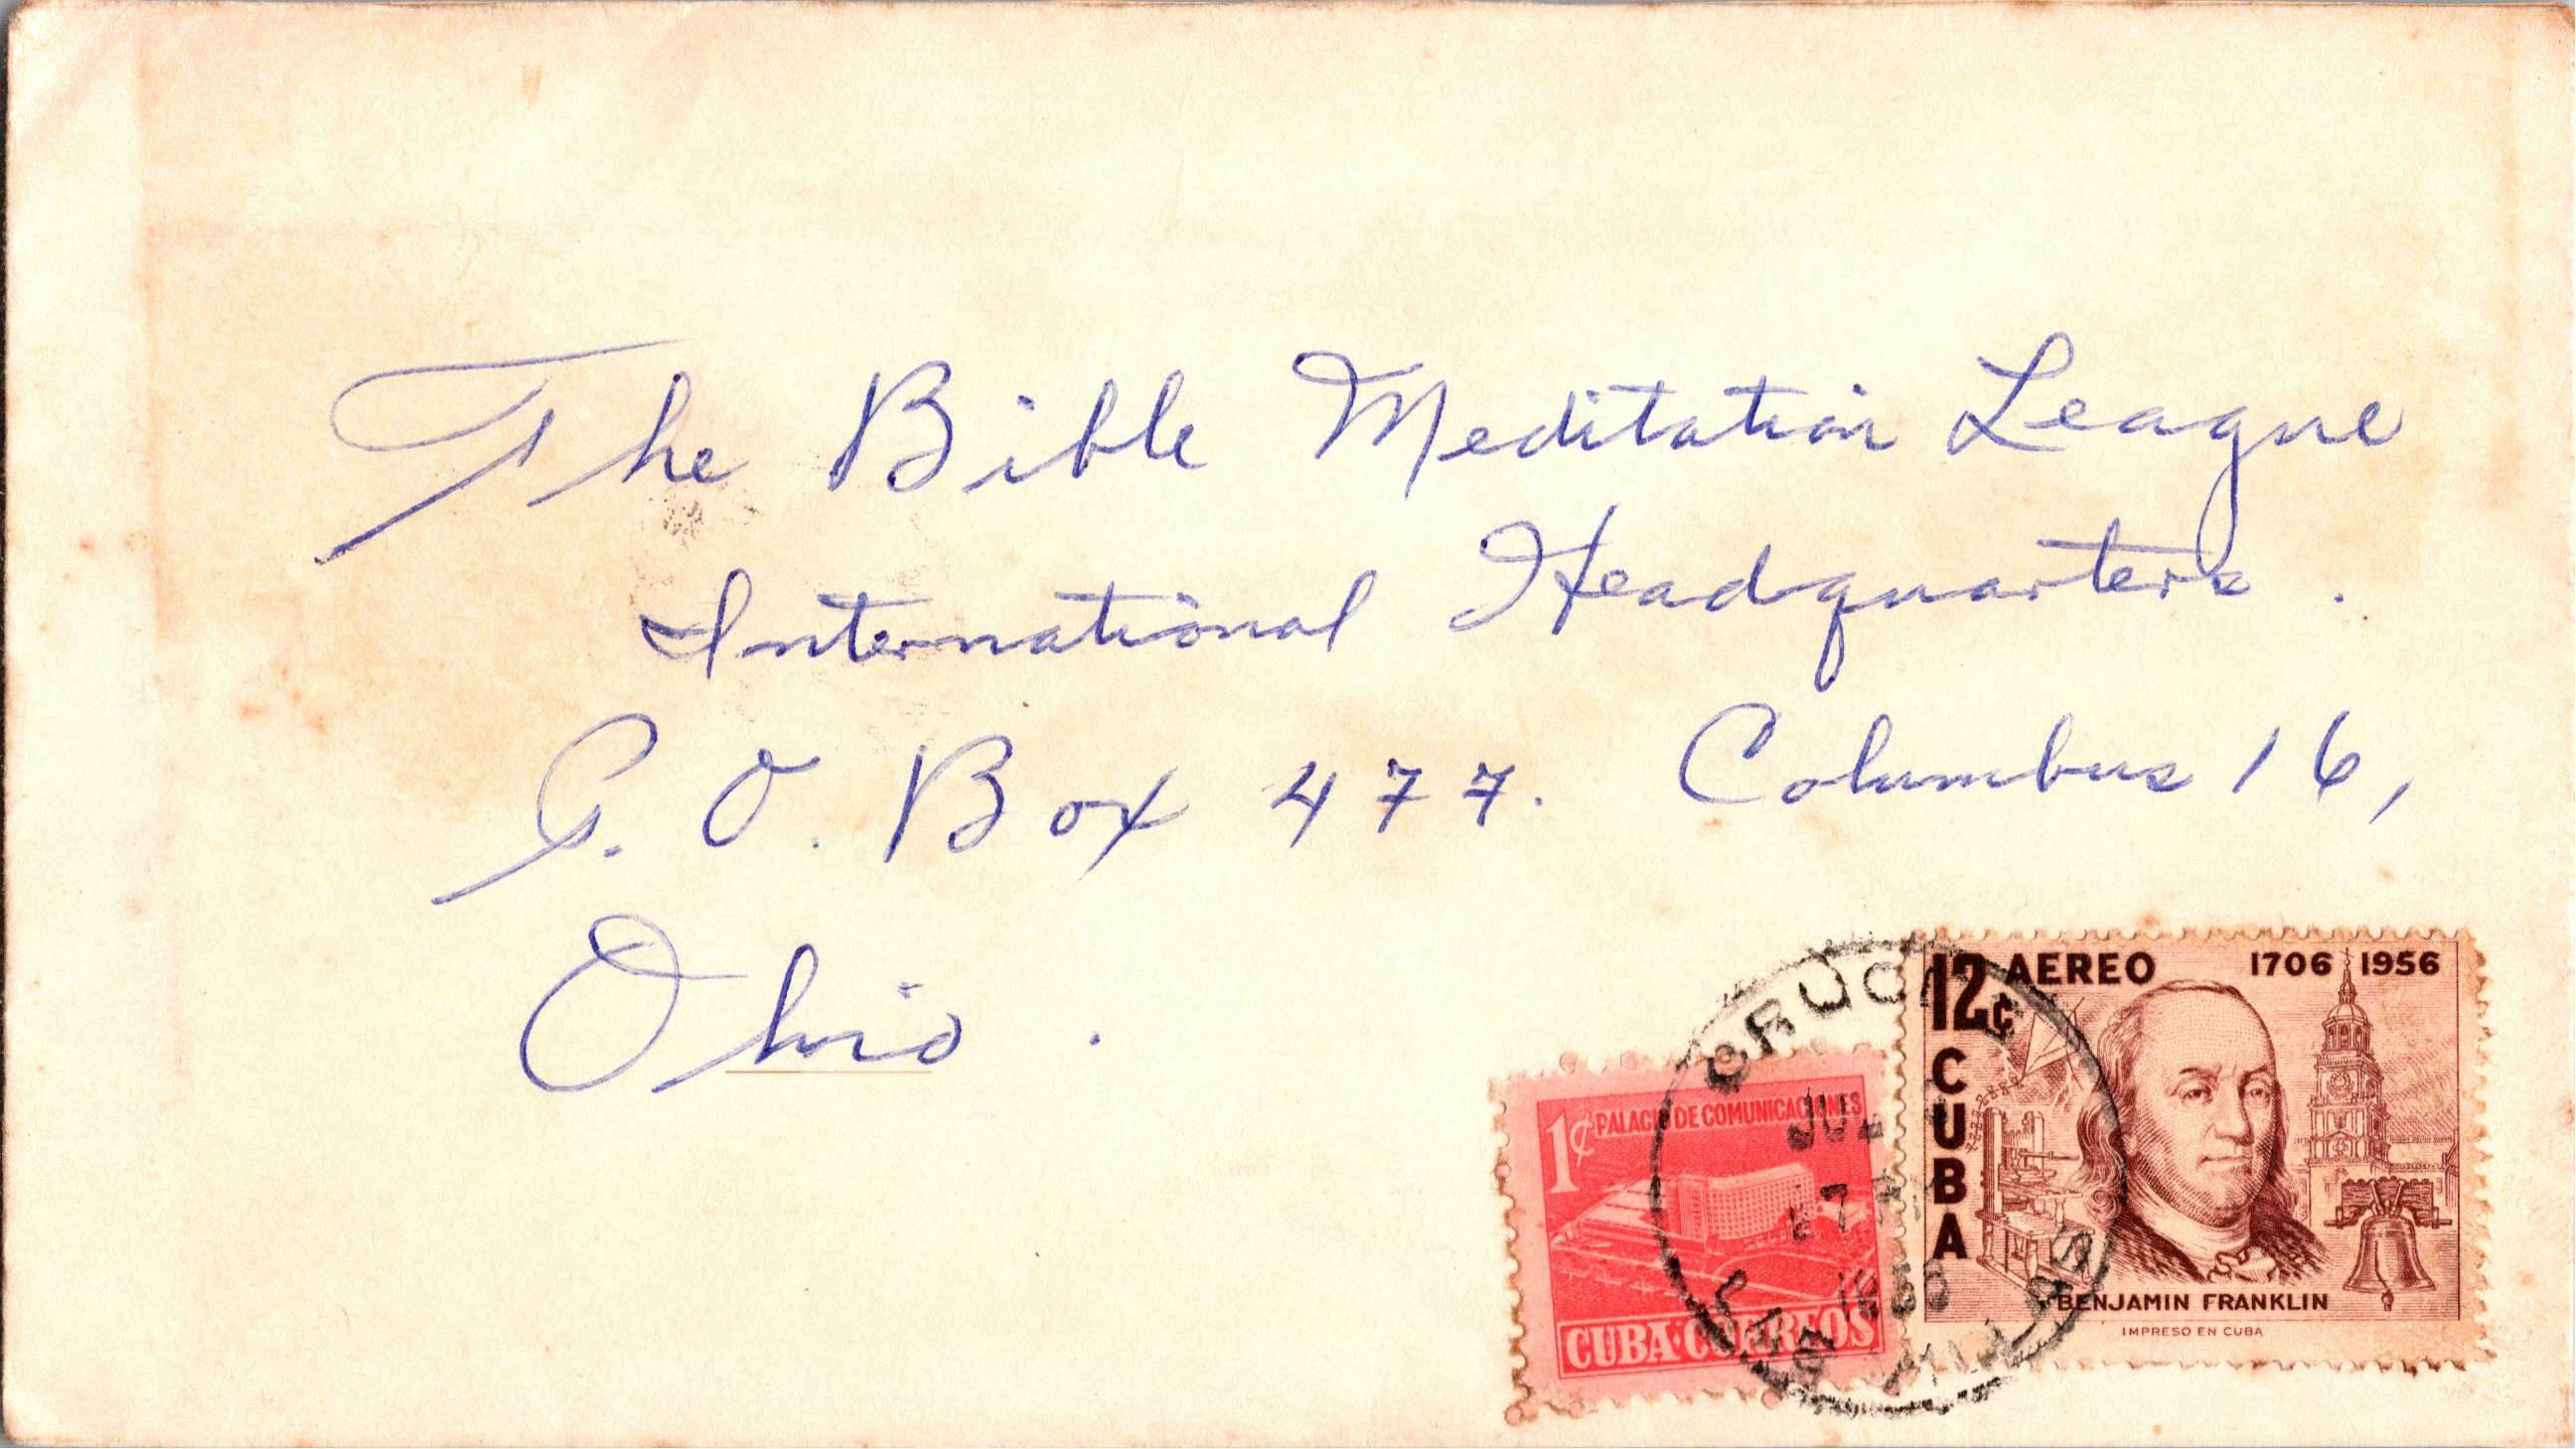 The Bible Meditation League
International Headquarters.
P. O. Box 477. Columbus 16,
Ohio.
12¢ AEREO 1706 1956
CUBA
BENJAMIN FRANKLIN
IMPRESO EN CUBA
1¢ PALACIO DE COMUNICACIONES
CUBA·CORREOS
CRUCES
JUL
LAS VILLAS